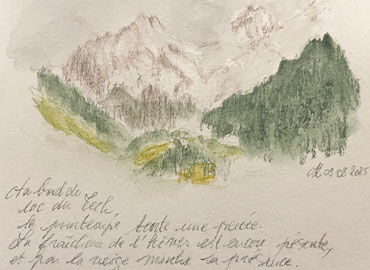 09.03.2025
Au bord du
lac du Lech,
le printemps tente une percée.
La fraîcheur de l'hiver est encore présente,
et par la neige montre sa présence.